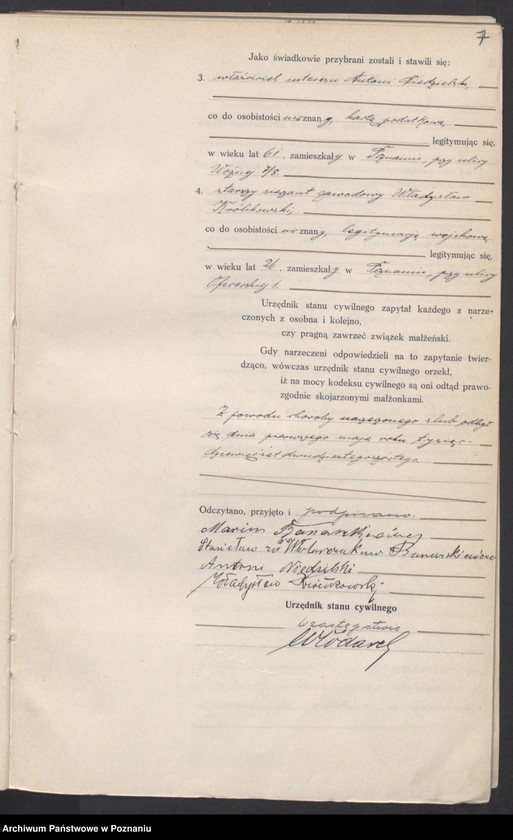 7
Jako świadkowie przybrani zostali i stawili się:
3. właściciel interesu Antoni Niedzielski,
co do osobistości nieznany, kartą podatkową
legitymując się,
w wieku lat 61. zamieszkały w Poznaniu, przy ulicy
Woźnej 7/8.
4. starszy sierżant zawodowy Władysław
Królikowski,
co do osobistości nieznany, legitymacją wojskową
legitymując się,
w wieku lat 26. zamieszkały w Poznaniu, przy ulicy
1.
Urzędnik stanu cywilnego zapytał każdego z narze-
czonych z osobna i kolejno,
czy pragną zawrzeć związek małżeński.
Gdy narzeczeni odpowiedzieli na to zapytanie twier-
dząco, wówczas urzędnik stanu cywilnego orzekł,
iż na mocy kodeksu cywilnego są oni odtąd prawo-
zgodnie skojarzonymi małżonkami.
Z powodu choroby narzeczonego ślub odbył
się dnia pierwszego maja roku tysiąc-
dziewięćset dwudziestego
Odczytano, przyjęto i podpisano.
Marian
Stanisława
Antoni Niedzielski
Władysław Królikowski
Urzędnik stanu cywilnego
w zastępstwie
Włodarek
Archiwum Państwowe w Poznaniu